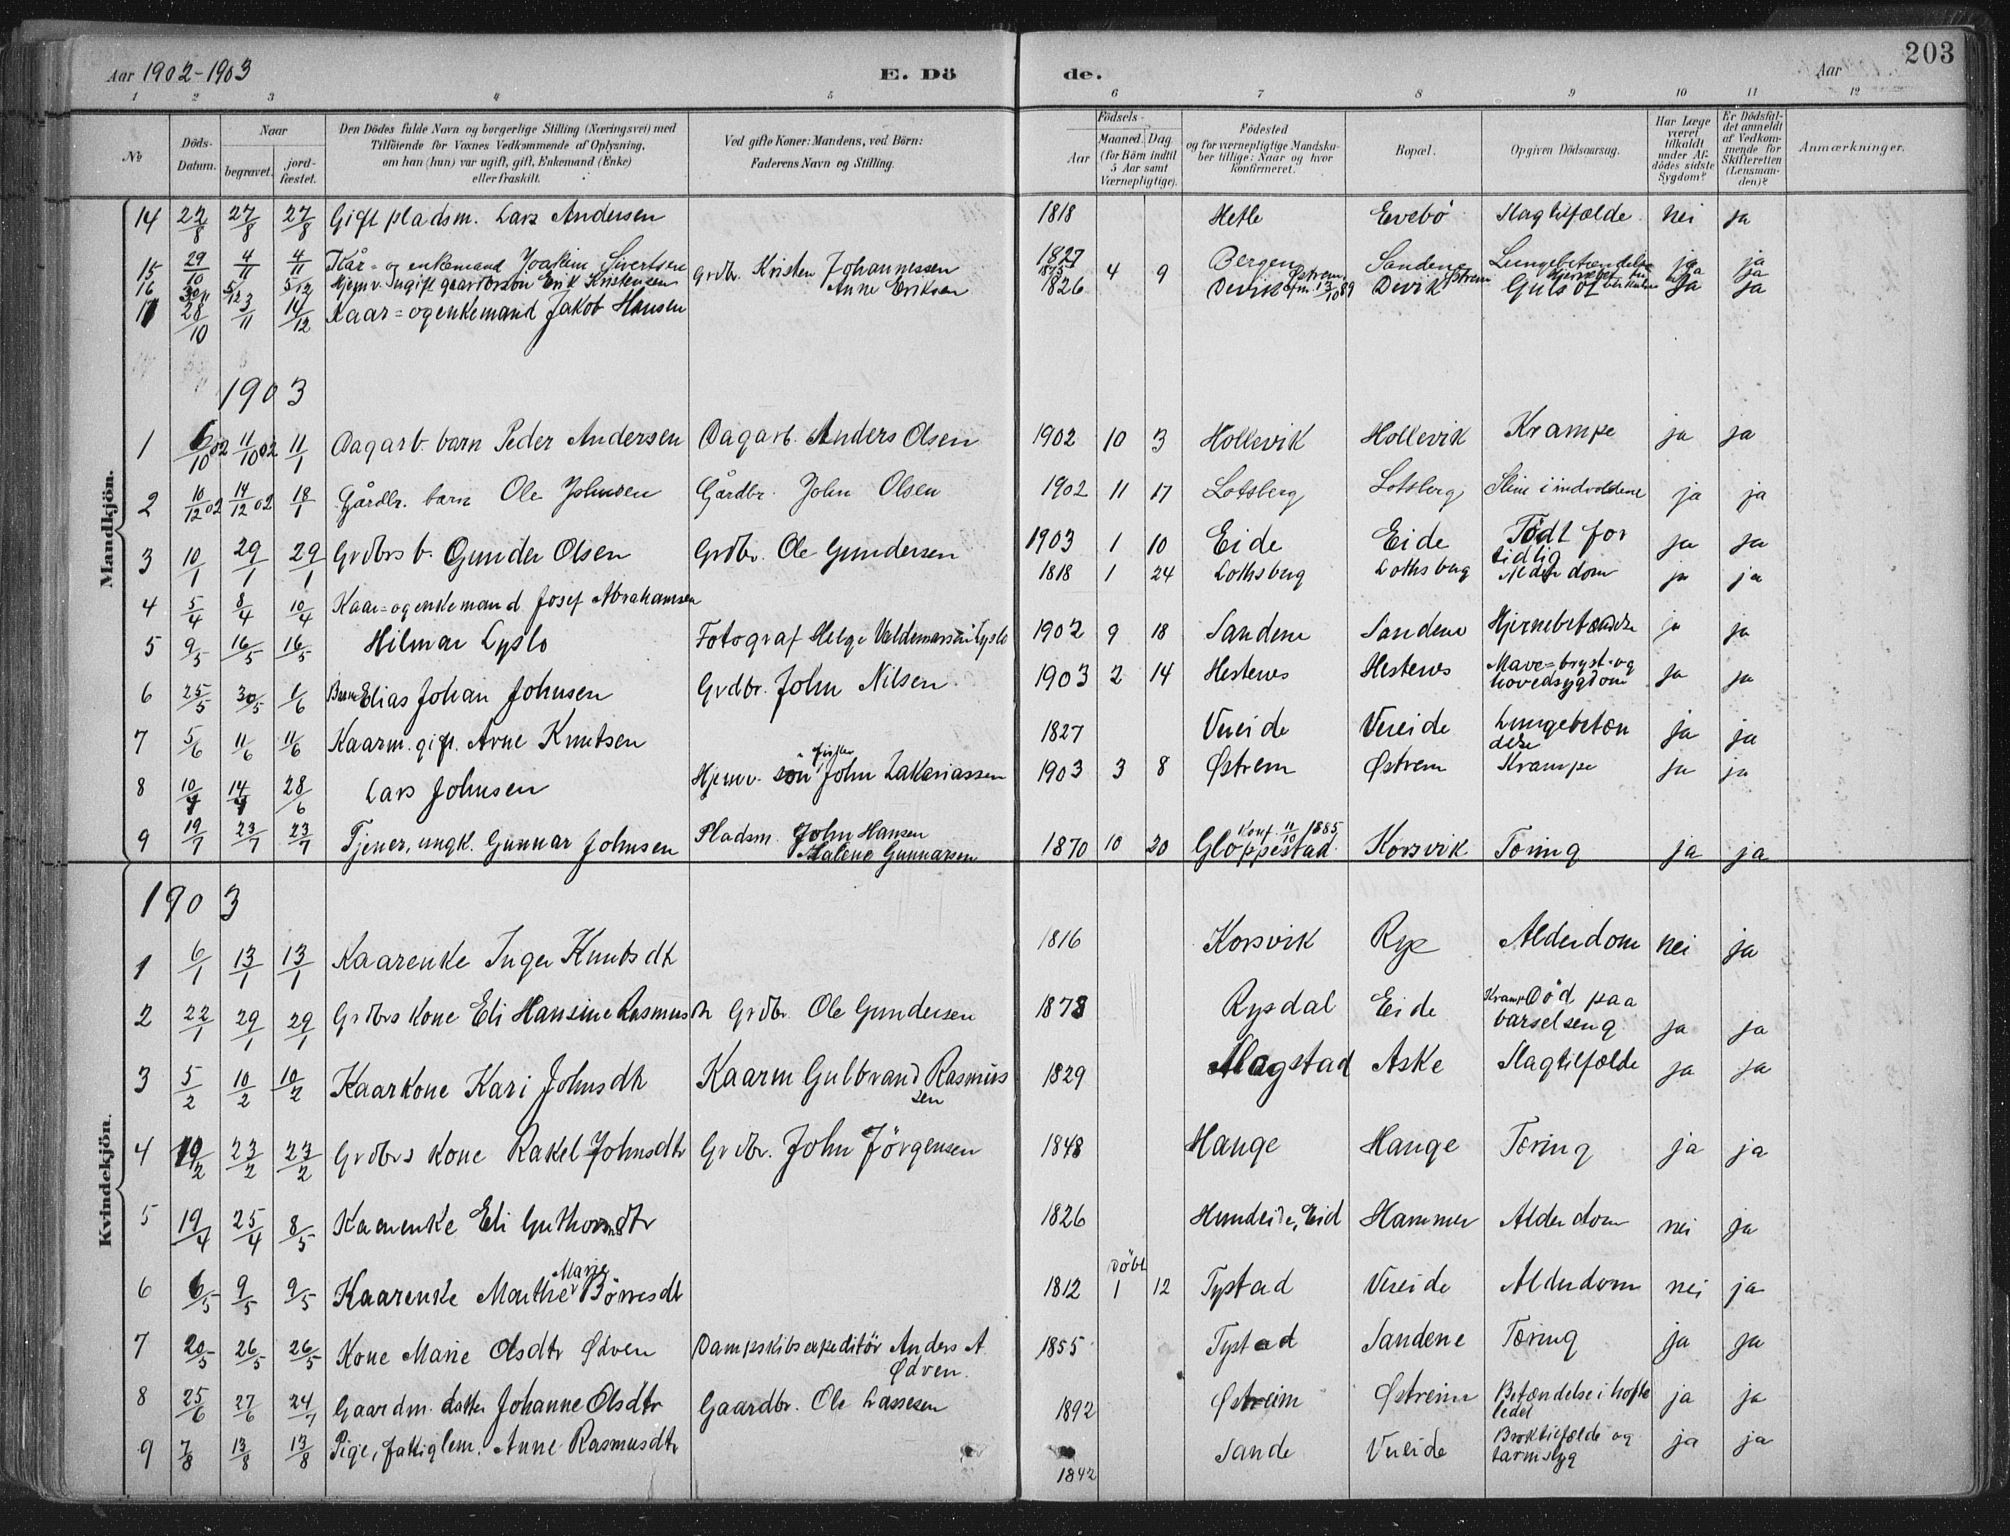 Aar 1902-1903 E. Dö de. Aar 203
1 2 3 4 5 6 7 8 9 10 11 12
№ Döds-Datum. Naar begravet. jordfæstet. Den Dödes fulde Navn og borgerlige Stilling (Næringsvei) med Tilföiende for Voxnes Vedkommende af Oplysning, om han (hun) var ugift, gift, Enkemand (Enke) eller fraskilt. Ved gifte Koner: Mandens, ved Börn: Faderens Navn og Stilling. Födsels- Aar Maaned. Dag (for Börn indtil 5 Aar samt Værnepligtige). Födested og for værnepligtige Mandskaber tillige: Naar og hvor konfirmeret. Bopæl. Opgiven Dödsaarsag. Har Læge været tilkaldt under Afdödes sidste Sygdom? Er Dödsfaldet anmeldt af Vedkommende for Skifteretten (Lensmanden)? Anmærkninger.
Mandkjön.
14 22/8 27/8 27/8 Gift pladsm. Lars Andersen 1818 Hetle Evebö Slagtilfælde nei ja
15 29/10 4/11 4/11 Kår- og enkemand Joakim Sivertsen 1827 Bergen Sandene Lungebetændelse ja ja
16 30/11 5/12 5/12 Hjemv. Ungift gaardsön Erik Kristensen Grdbr. Kristen Johannessen Anne Eriksen 1875 4 9 Østrem Østrem ja ja
17 28/10 3/11 14/12 Kaar- og enkemand Jakob Hansen 1826 Devik Devik Gulsot ja ja
1903
1 6/10 02 11/10 02 11/1 Dagarb. barn Peder Andersen Dagarb. Anders Olsen 1902 10 3 Hollevik Hollevik Krampe ja ja
2 10/12 02 14/12 02 18/1 Gårdbr. barn Ole Johnsen Gårdbr. John Olsen 1902 11 17 Lotsberg Lotsberg Slim i indvoldene ja ja
3 10/1 29/1 29/1 Grdbrs b. Gunder Olsen Grdbr. Ole Gundersen 1903 1 10 Eide Eide Født for tidlig ja ja
4 5/4 8/4 10/4 Kaar- og enkemand Josef Abrahamsen 1818 1 24 Lothsberg Lothsberg Alderdom ja ja
5 9/5 16/5 16/5 Hilmar Lyslo Fotograf Helge Valdemarsen Lyslo 1902 9 18 Sandene Sandene Hjernebetændelse ja ja
6 25/5 30/5 1/6 Barn Elias Johan Johnsen Grdbr. John Nilsen 1903 2 14 Hestenes Hestenes Mave- bryst- og hovedsygdom ja ja
7 5/6 11/6 11/6 Kaarm. gift. Arne Knutsen 1827 Vereide Vereide Lungebetændelse ja ja
8 10/4 14/4 28/6 Lars Johnsen Hjemv. sön Fisker John Zakariassen 1903 3 8 Østrem Østrem Krampe ja ja
9 19/7 23/7 23/7 Tjener, ungk. Gunnar Johnsen Pladsm. John Hansen Malene Gunnarsen 1870 10 20 Gloppestad Konf. 11/10 1885 Korsvik Tæring ja ja
Kvindekjön.
1903
1 6/1 13/1 13/1 Kaarenke Inger Knutsdtr 1816 Korsvik Rye Alderdom nei ja
2 22/1 29/1 29/1 Grdbrs kone Eli Hansine Rasmusdtr Grdbr. Ole Gundersen 1878 Rysdal Eide Krampe Død paa barselseng ja ja
3 5/2 10/2 10/2 Kaarkone Kari Johnsdtr Kaarm Gulbrand Rasmussen 1829 Magstad Aske Slagtilfælde ja ja
4 19/2 23/2 23/2 Grdbrs kone Rakel Johnsdtr Grdbr. John Jörgensen 1848 Hauge Hauge Tæring ja ja
5 19/4 25/4 8/5 Kaarenke Eli Guthormsdtr 1826 Hundeide, Eid Hammer Alderdom nei ja
6 6/5 9/5 9/5 Kaarenke Marthe Marie Börresdtr 1812 döbt 1 12 Tystad Vereide Alderdom nei ja
7 20/5 26/5 26/5 Kone Marie Olsdtr Ødven Dampskibsexpeditör Anders A. Ødven. 1855 Tystad Sandene Tæring ja ja
8 25/6 27/6 24/7 Gaardm. datter Johanne Olsdtr Gaardbr. Ole Lassesen 1892 Østreim Østreim Betændelse i hofteledet ja ja
9 7/8 13/8 13/8 Pige, fattiglem. Anne Rasmusdtr 1842 Sande Vereide Broktilfælde og tarmslyg ja ja